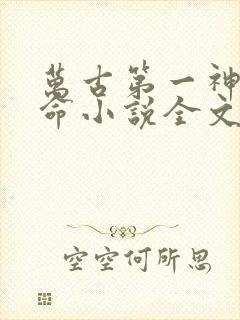 萬古第一神
命小說全文
空空何所思